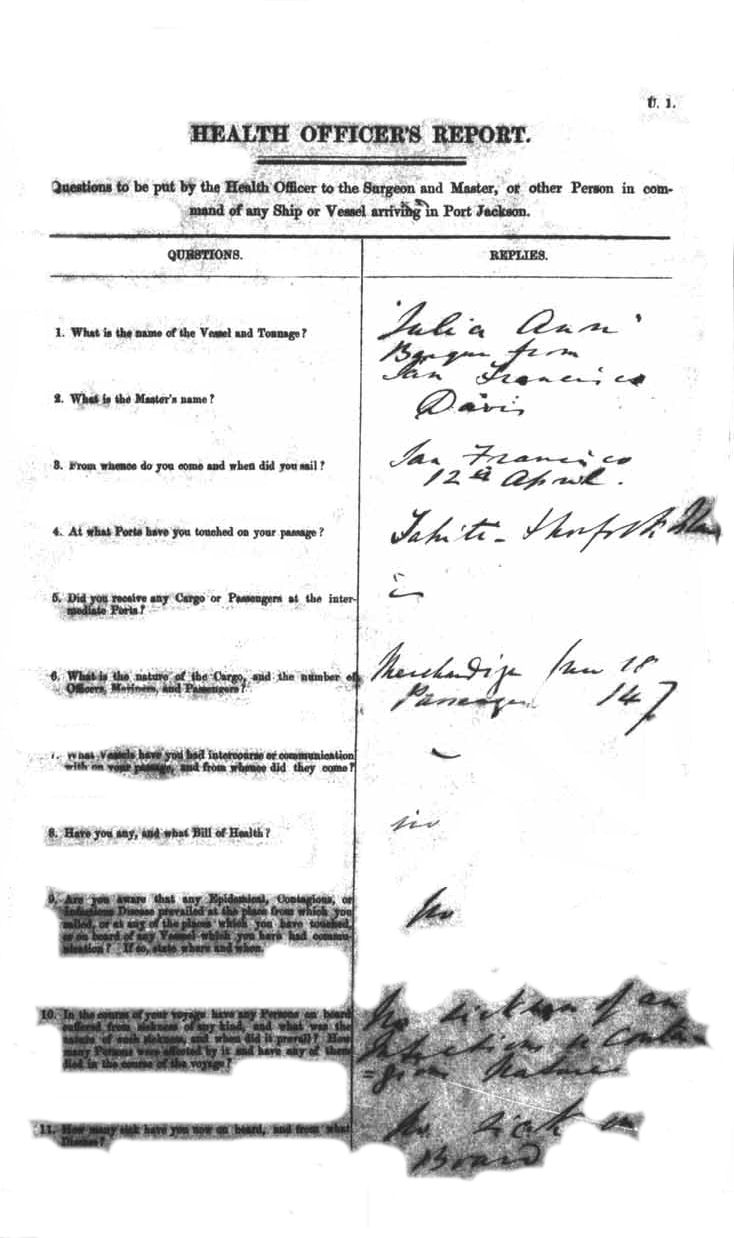 U. 1.
HEALTH OFFICER'S REPORT.
Questions to be put by the Health Officer to the Surgeon and Master, or other Person in com-
mand of any Ship or Vessel arriving in Port Jackson.
QUESTIONS.
REPLIES.
1. What is the name of the Vessel and Tonnage?
"Julia Ann"
Barque from
San Francisco
2. What is the Master's name?
Davis
3. From whence do you come and when did you sail?
San Francisco
12th April.
4. At what Ports have you touched on your passage?
Tahiti -
5. Did you receive any Cargo or Passengers at the inter-
mediate Ports?
6. What is the nature of the Cargo, and the number of
Officers, Mariners, and Passengers?
Merchandize 18
Passengers 147
7. What Vessels have you had intercourse or communication
with on your passage, and from whence did they come?
8. Have you any, and what Bill of Health?
no
9. Are you aware that any Epidemical, Contagious, or
Infectious Disease prevailed at the place from which you
sailed, or at any of the places which you have touched,
or on board of any Vessel which you have had commu-
nication? If so, state where and when.
No
10. In the course of your voyage have any Persons on board
suffered from sickness of any kind, and what was the
nature of such sickness, and when did it prevail? How
many Persons were affected by it and have any of them
died in the course of the voyage?
No sickness of an
Infectious or Conta
=gious Nature
11. How many sick have you now on board, and from what
Disease?
No sick on
Board